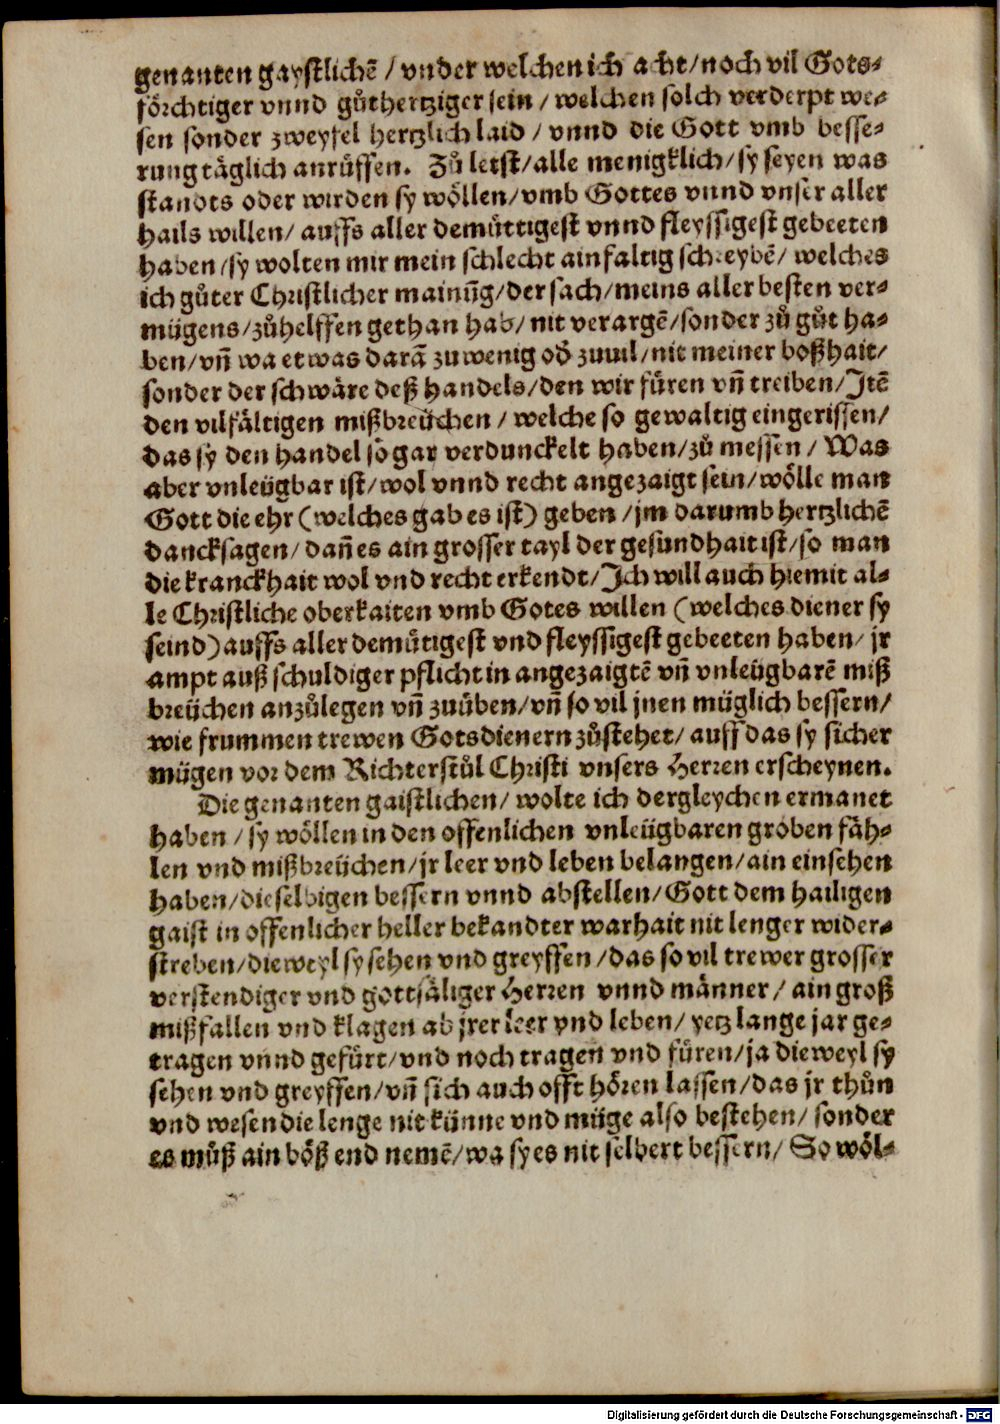 genanten gaystlichẽ / vnder welchen ich acht / noch vil Gots-
förchtiger vnnd gůthertziger sein / welchen solch verderpt we-
sen sonder zweyfel hertzlich laid / vnnd die Gott vmb besse-
rung täglich anrůffen. Zů letst / alle menigklich / sy seyen was
standts oder wirden sy wöllen / vmb Gottes vnnd vnser aller
hails willen / auffs aller demůttigest vnnd fleyssigest gebeeten
haben / sy wolten mir mein schlecht ainfaltig schreybẽ / welches
ich gůter Christlicher mainũg / der sach / meins aller besten ver-
mügens / zůhelffen gethan hab / nit verargẽ / sonder zů gůt ha-
ben / vñ wa etwas darã zuwenig od̕ zuuil / nit meiner boßhait /
sonder der schwäre deß handels / den wir füren vñ treiben / Jtẽ
den vilfältigen mißbreüchen / welche so gewaltig eingerissen /
das sy den handel so gar verdunckelt haben / zů messen / Was
aber vnleügbar ist / wol vnnd recht angezaigt sein / wölle man
Gott die ehr (welches gab es ist) geben / jm darumb hertzlichẽ
dancksagen / dañ es ain grosser tayl der gesundhait ist / so man
die kranckhait wol vnd recht erkendt / Jch will auch hiemit al-
le Christliche oberkaiten vmb Gotes willen (welches diener sy
seind) auffs aller demůtigest vnd fleyssigest gebeeten haben / jr
ampt auß schuldiger pflicht in angezaigtẽ vñ vnleügbarẽ miß
breüchen anzůlegen vñ zuüben / vñ so vil jnen müglich bessern /
wie frummen trewen Gotsdienern zůstehet / auff das sy sicher
mügen vor dem Richterstůl Christi vnsers Herren erscheynen.
Die genanten gaistlichen / wolte ich dergleychen ermanet
haben / sy wöllen in den offenlichen vnleügbaren groben fäh-
len vnd mißbreüchen / jr leer vnd leben belangen / ain einsehen
haben / dieselbigen bessern vnnd abstellen / Gott dem hailigen
gaist in offenlicher heller bekandter warhait nit lenger wider-
streben / dieweyl sy sehen vnd greyffen / das so vil trewer grosser
verstendiger vnd gottsäliger Herren vnnd männer / ain groß
mißfallen vnd klagen ab jrer leer vnd leben / yetz lange jar ge-
tragen vnnd gefürt / vnd noch tragen vnd füren / ja dieweyl sy
sehen vnd greyffen / vñ sich auch offt hören lassen / das jr thůn
vnd wesen die lenge nit künne vnd müge also bestehen / sonder
es můß ain böß end nemẽ / wa sy es nit selbert bessern / So wöl-
Digitalisierung gefördert durch die Deutsche Forschungsgemeinschaft - DFG